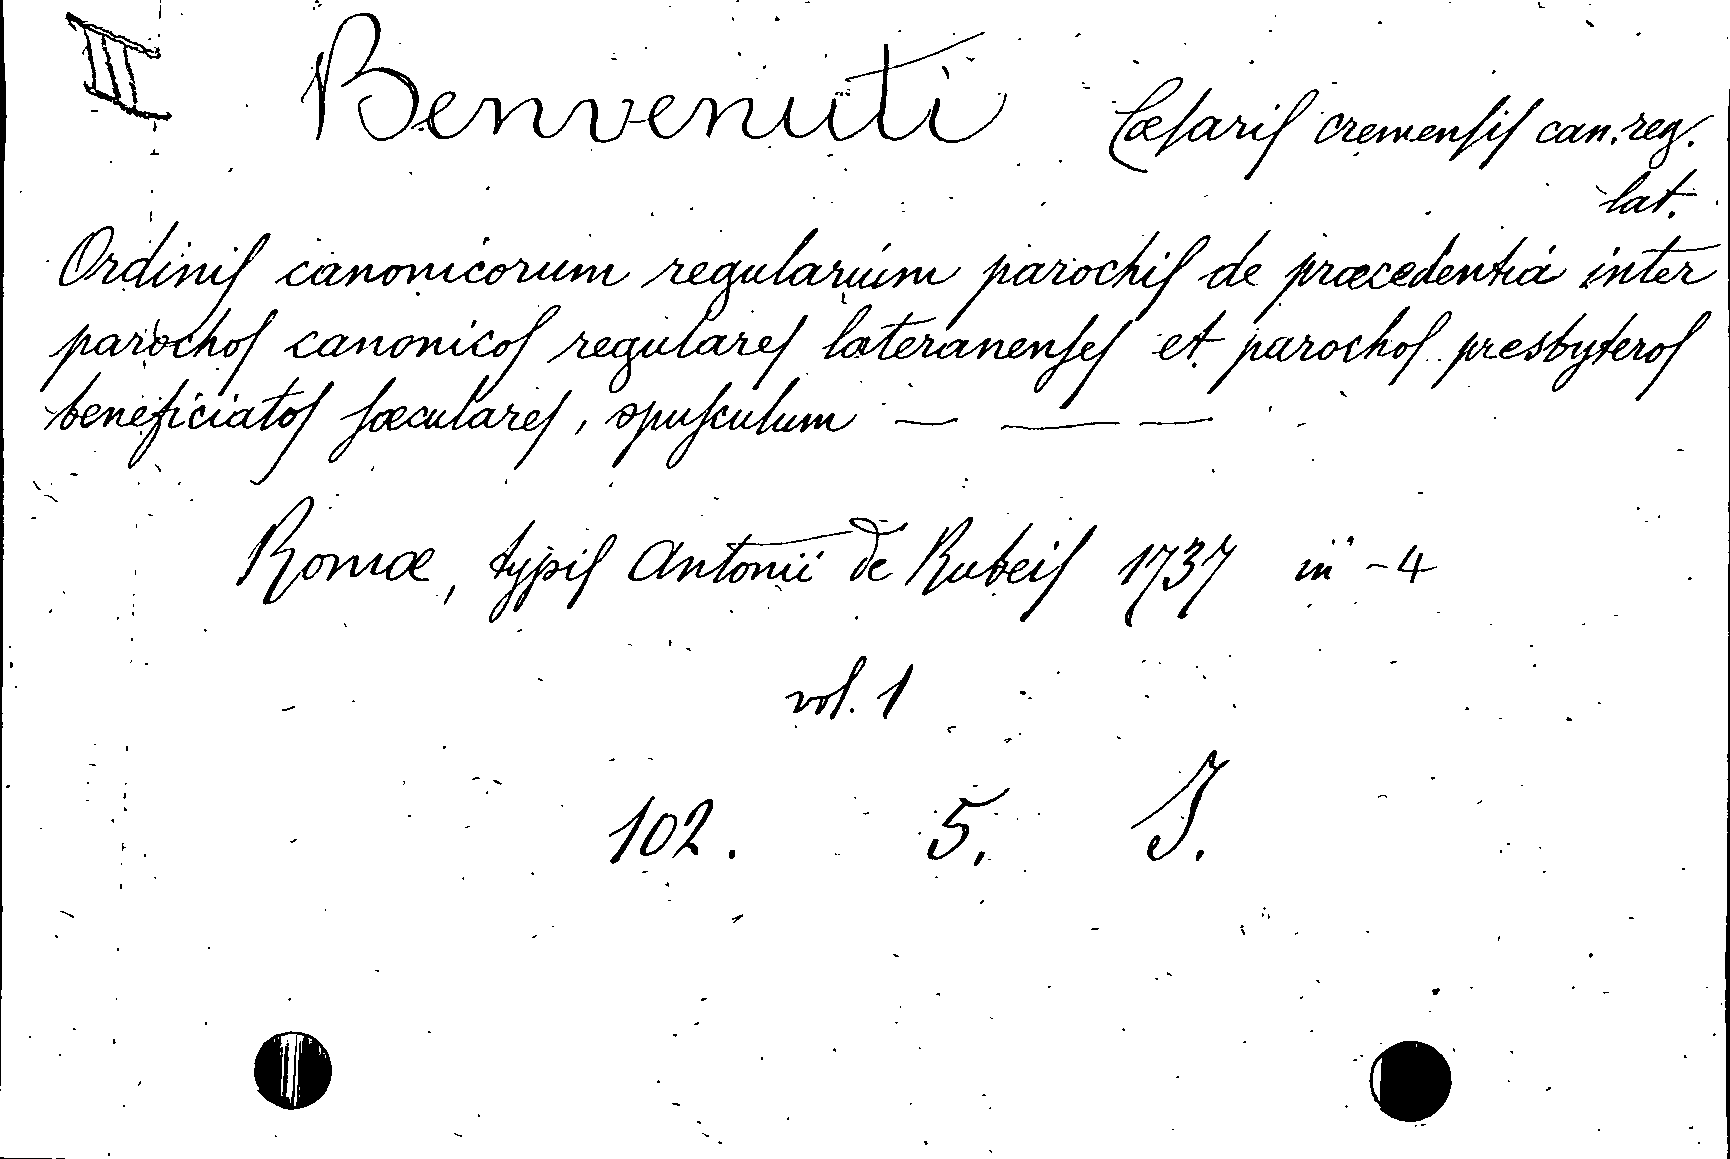 III Benvenuti Cæsaris cremensis can. reg.
lat.
Ordinis canonicorum regularium parochis de præcedentiá inter
parochos canonicos regulares lateranenses et parochos presbyteros
beneficiatos sæculares, opusculum — — —
Romæ, typis Antonii de Rubeis 1737 in-4
vol. 1
102. 5. J.